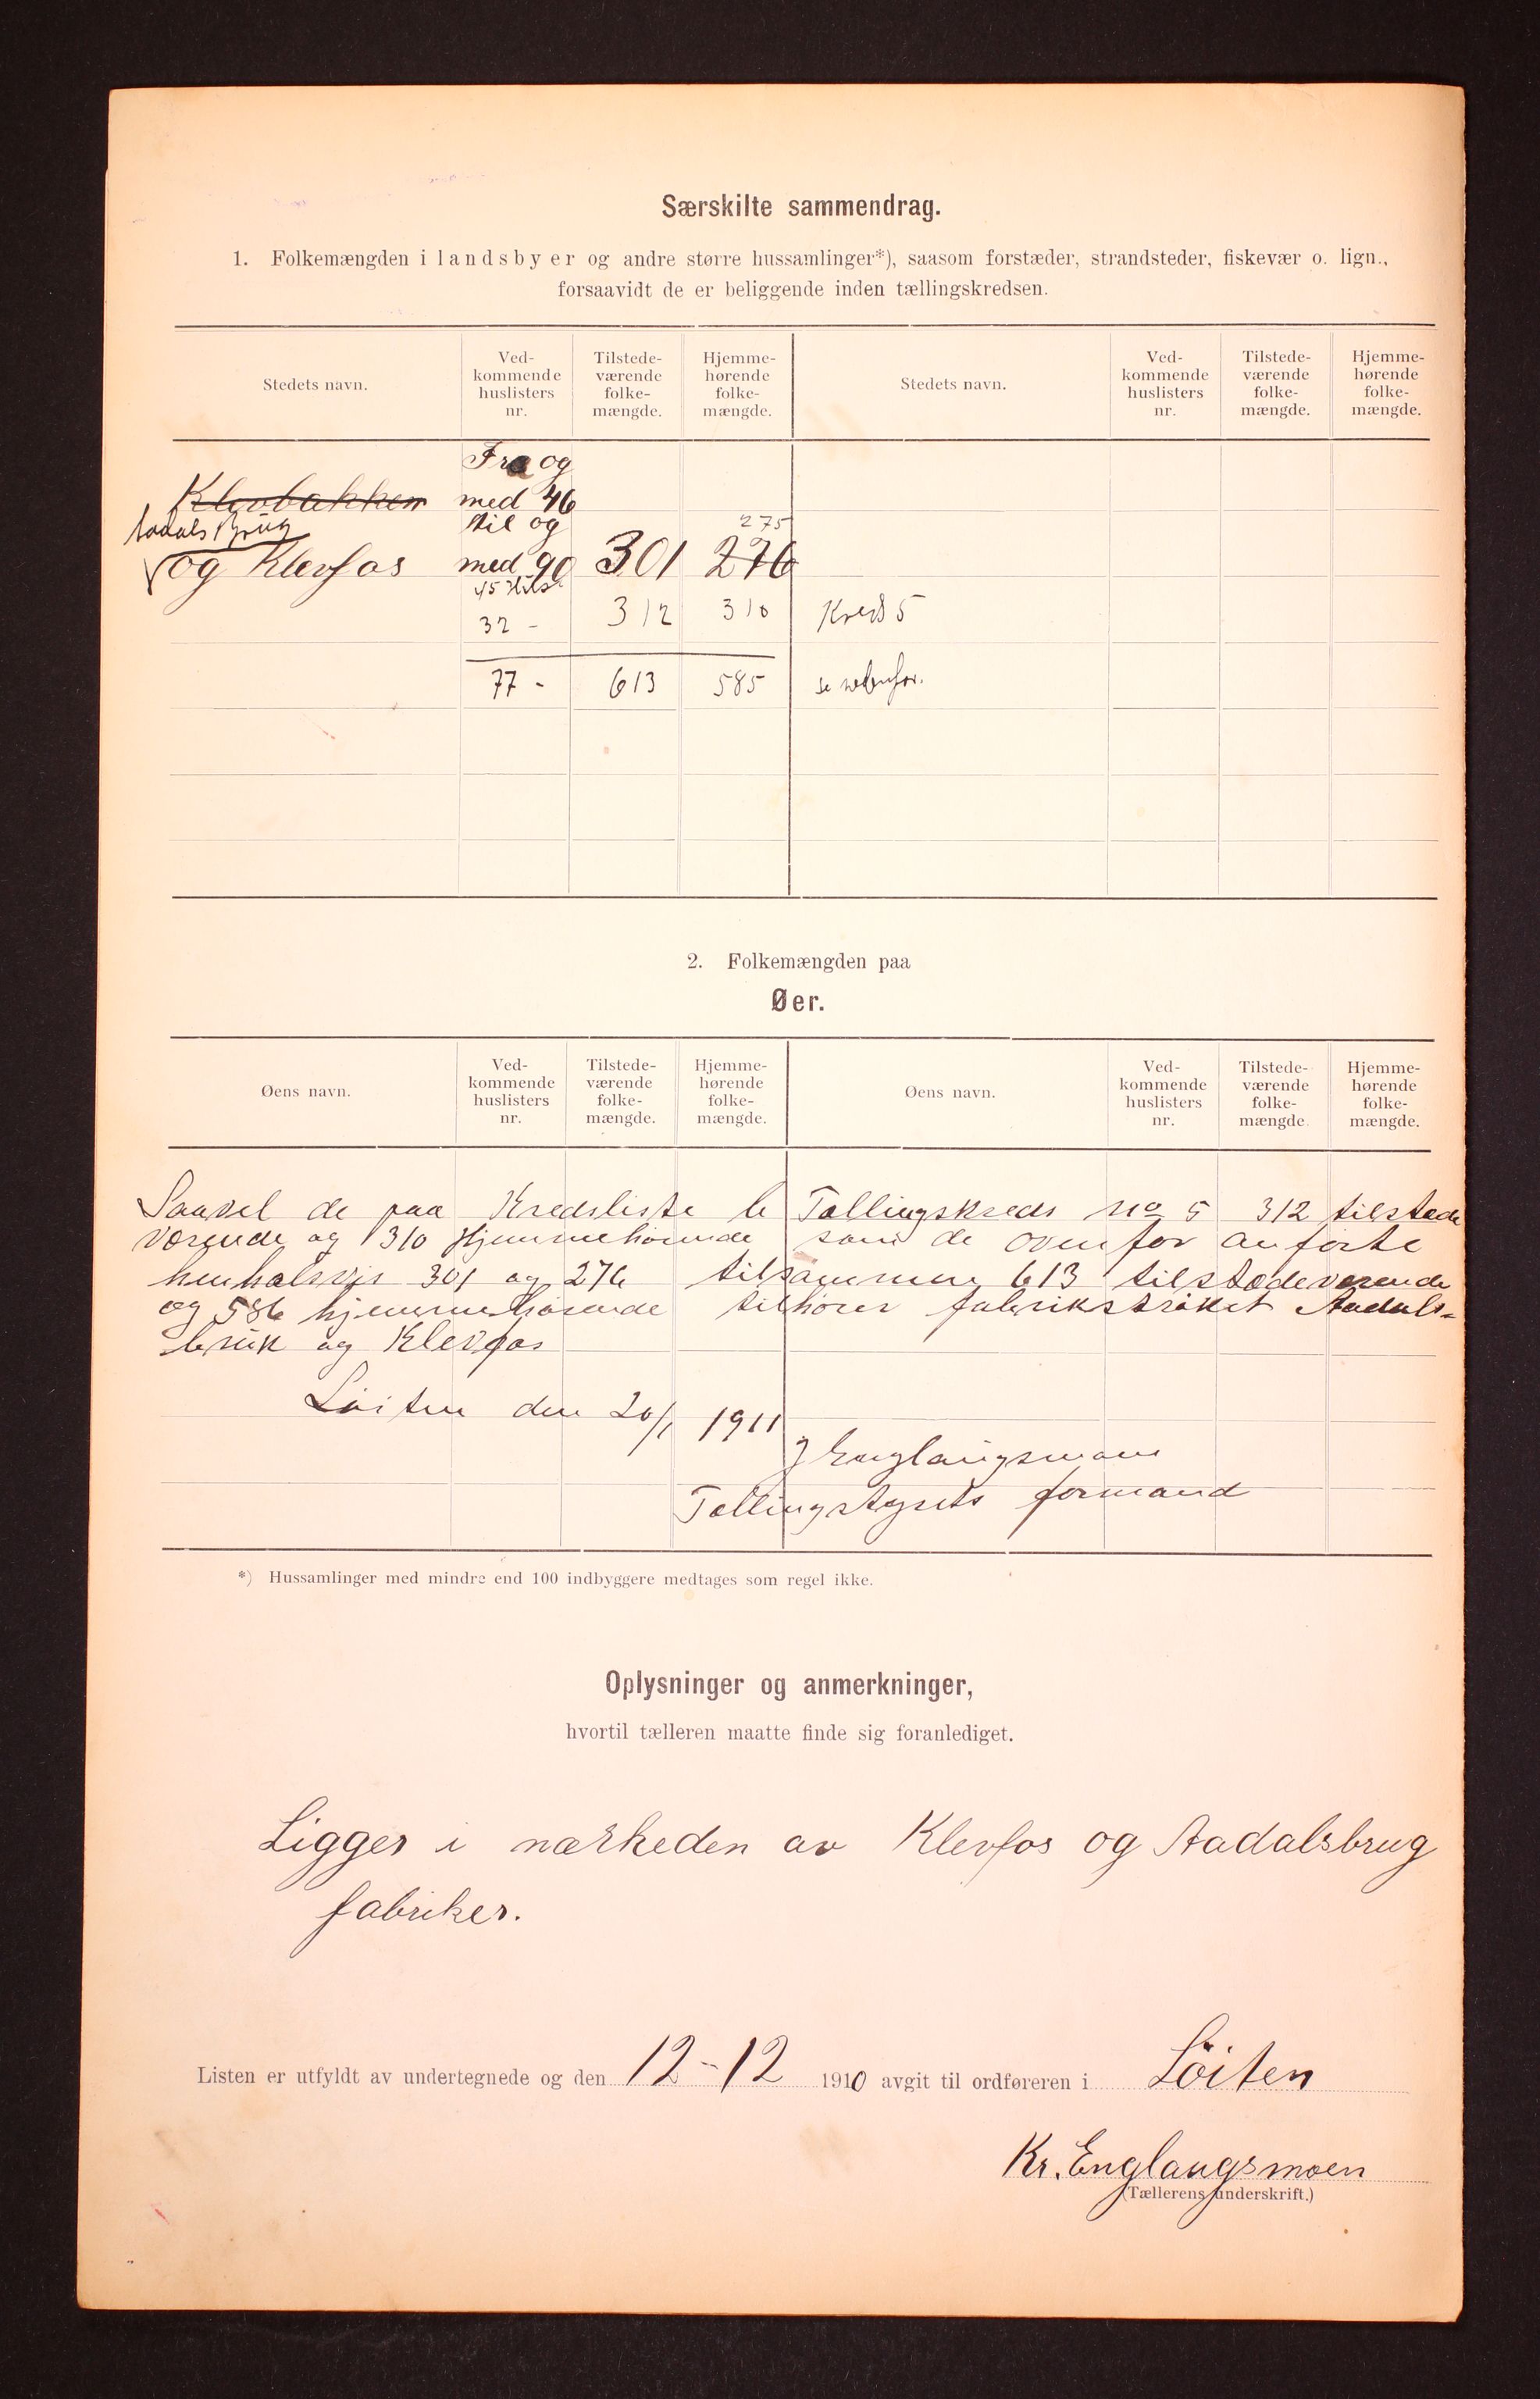 Særskilte sammendrag.
1. Folkemængden i landsbyer og andre større hussamlinger*), saasom forstæder, strandsteder, fiskevær o. lign.,
forsaavidt de er beliggende inden tællingskredsen.
Stedets navn. Ved-kommende huslisters nr. Tilstede-værende folke-mængde. Hjemme-hørende folke-mængde. Stedets navn. Ved-kommende huslisters nr. Tilstede-værende folke-mængde. Hjemme-hørende folke-mængde.
Fra og
Klevbakken med 46
Aadals Brug til og 275
og Klevfos med 90 301 276
45 Husl
32 - 312 310 Kreds 5
77 - 613 585 se nedenfor.
2. Folkemængden paa
Øer.
Øens navn. Ved-kommende huslisters nr. Tilstede-værende folke-mængde. Hjemme-hørende folke-mængde. Øens navn. Ved-kommende huslisters nr. Tilstede-værende folke-mængde Hjemme-hørende folke-mængde.
Saavel de paa Kredsliste b Tællingskreds no 5 312 tilstede
værende og 310 Hjemmehørende som de ovenfor anførte
henholsvis 301 og 276 tilsammen 613 tilstedeværende
og 586 hjemmehørende tilhører fabrikstrøket Aadals-
bruk og Klevfos
Løiten den 20/1 1911
J Englaugsmoen
Tællingstyrets formand
*) Hussamlinger med mindre end 100 indbyggere medtages som regel ikke.
Oplysninger og anmerkninger,
hvortil tælleren maatte finde sig foranlediget.
Ligger i nærheden av Klevfos og Aadalsbrug
fabriker.
Listen er utfyldt av undertegnede og den 12-12 1910 avgit til ordføreren i Löiten
Kr. Englaugsmoen
(Tællerens underskrift.)